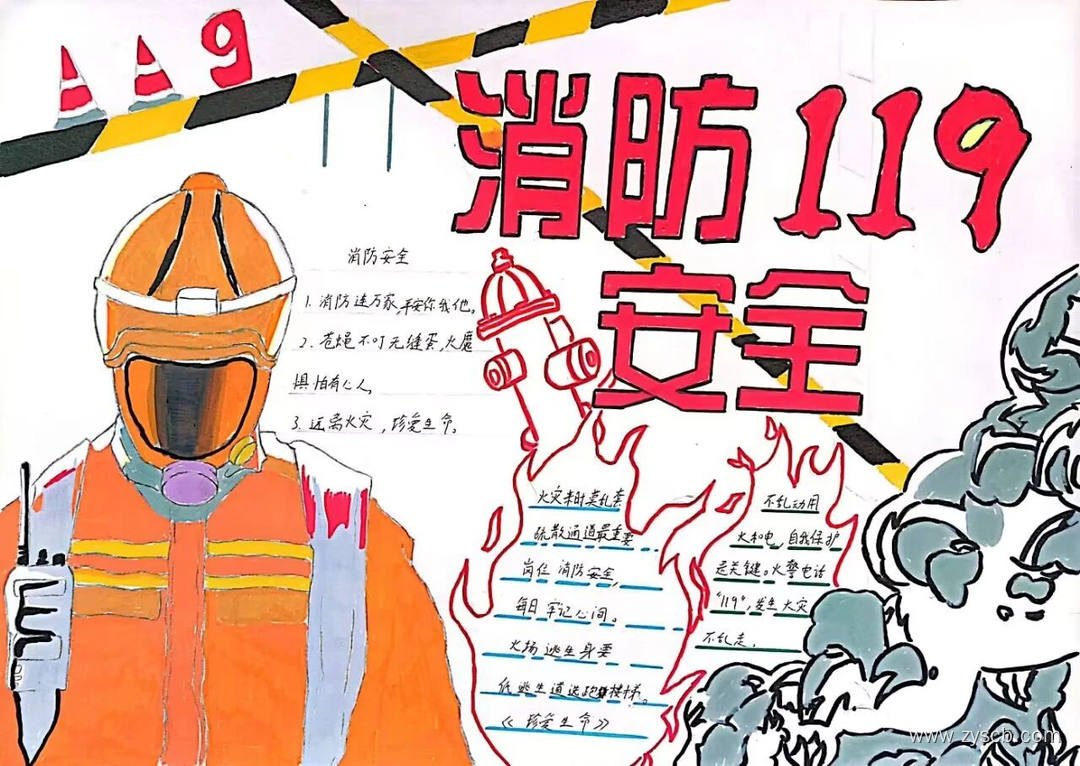 119
消防119
安全
消防安全
1. 消防连万家,平安你我他。
2. 苍蝇不叮无缝蛋,火魔
惧怕有心人
3. 远离火灾,珍爱生命。
火灾来时莫乱套
疏散通道最重要
岗位 消防安全,
每日 牢记心间。
火场 逃生身要
低 逃生道选 楼梯。
《珍爱生命》
不乱动用
火和电,自我保护
是关键。火警电话
"119",发生火灾
不乱走.
www.zyscb.com